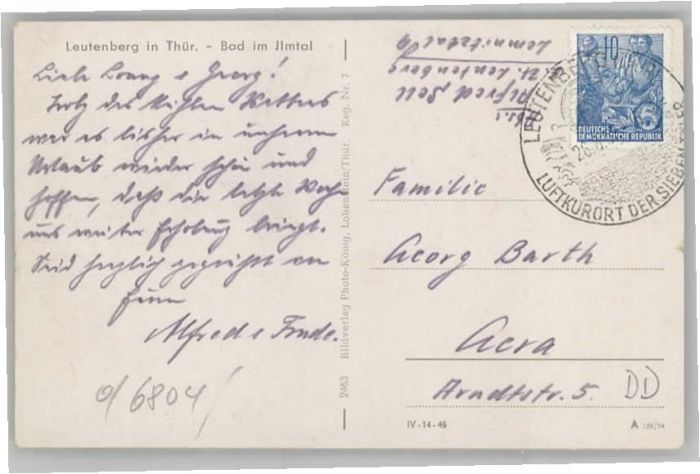 Leutenberg in Thür. - Bad im Ilmtal
Liebe Lonny u Georg!
Trotz des kühlen Wetters
war es bisher in unserem
Urlaub wieder schön und
hoffen, daß die letzte Woche
uns weiter Erholung bringt.
Seid herzlich gegrüßt von
Alfred u Trude.
6804
2463 Bildverlag Photo-König, Lobenstein/Thür. Reg. Nr. 7
Alfred Sell
z. Zt. Leutenberg
Lemnitztal
10
5
DEUTSCHE
DEMOKRATISCHE REPUBLIK
LUFTKURORT DER SIEBEN TÄLER
Familie
Georg Barth
Gera
Arndtstr. 5. DD
IV-14-45
A